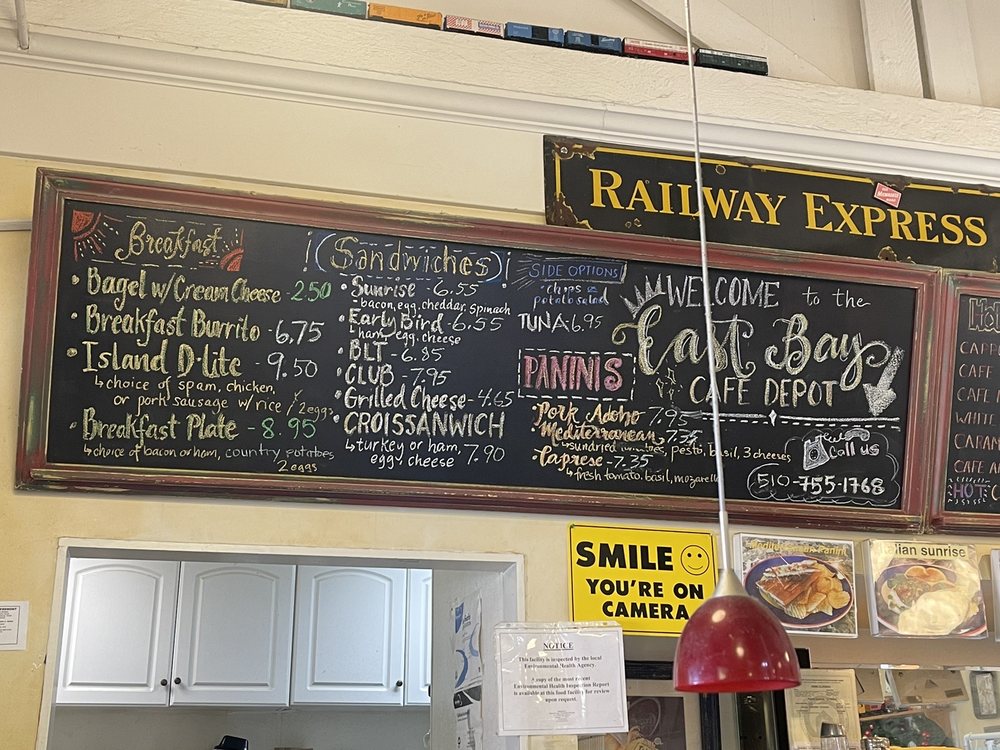 RAILWAY EXPRESS
Breakfast
• Bagel w/Cream Cheese - 2.50
• Breakfast Burrito - 6.75
• Island D-lite - 9.50
↳ choice of spam, chicken,
or pork sausage w/rice / 2 eggs
• Breakfast Plate - 8.95
↳ choice of bacon or ham, country potatoes
2 eggs
! (Sandwiches) !
• Sunrise - 6.55
- bacon, egg, cheddar, spinach
• Early Bird - 6.55
↳ ham, egg, cheese
• BLT - 6.85
• CLUB - 7.95
• Grilled Cheese - 4.65
• CROISSANWICH
↳ turkey or ham,
egg, cheese 7.90
SIDE OPTIONS
• chips
potato salad
TUNA 6.95
PANINIS
• Pork Adobo 7.95
• Mediterranean 7.35
↳ sundried tomatoes, pesto, basil, 3 cheeses
• Caprese - 7.35
↳ fresh tomato, basil, mozarella
WELCOME to the
East Bay
CAFE DEPOT
Call us
510-755-1768
CAFE
CAFE
WHITE
CARAM
CAFE A
HOT
SMILE
YOU'RE ON
CAMERA
NOTICE
This facility is inspected by the local
Environmental Health Agency.
A copy of the most recent
Environmental Health Inspection Report
is available at this food facility for review
upon request.
Mediterranean Panini
alian sunrise